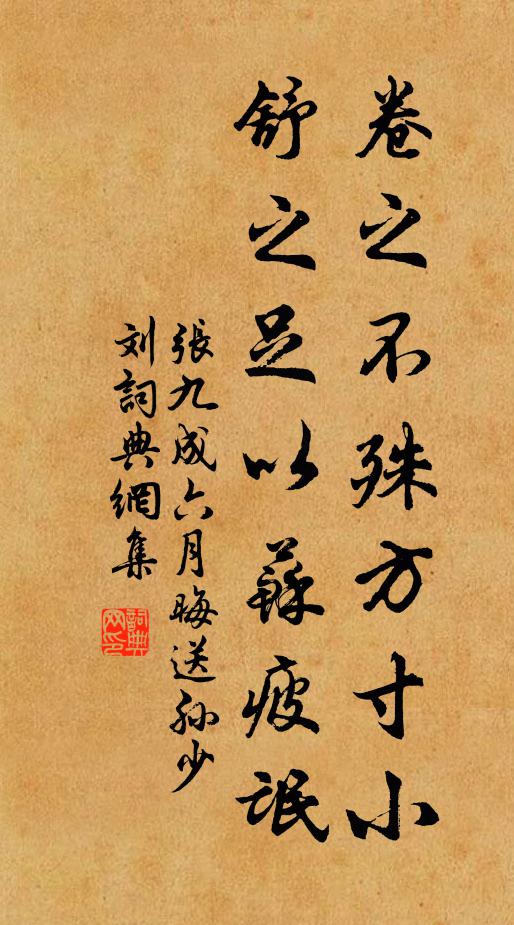 卷之不殊方寸小
舒之足以蘇疲氓
張九成六月晦送孙少
刘詞典網集
詞典
网印